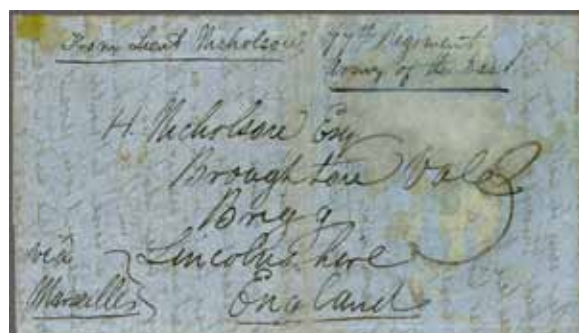 From Lieut Nicholson, 77th Regiment
Army of the East
H. Nicholson Esq
Broughton Vale
Brigg
via Lincolnshire
Marseilles England